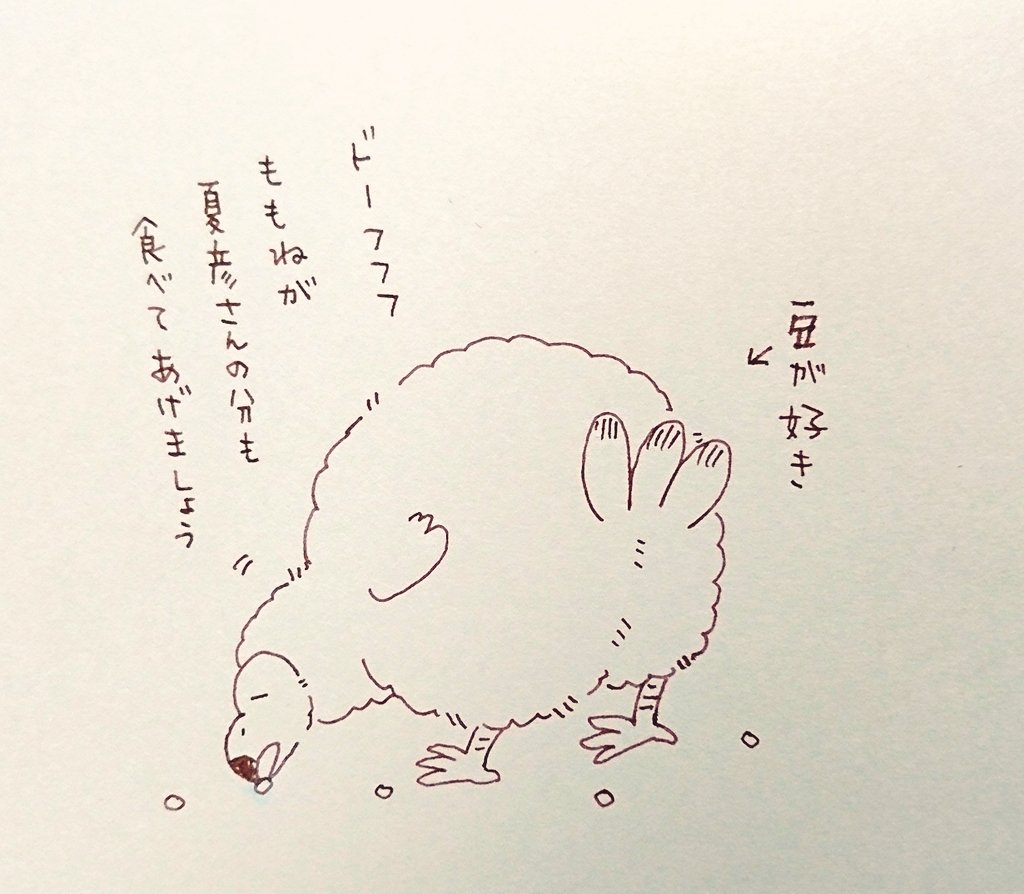 豆が好き
ドーフフフ
ももねが
夏彦さんの分も
食べてあげましょう